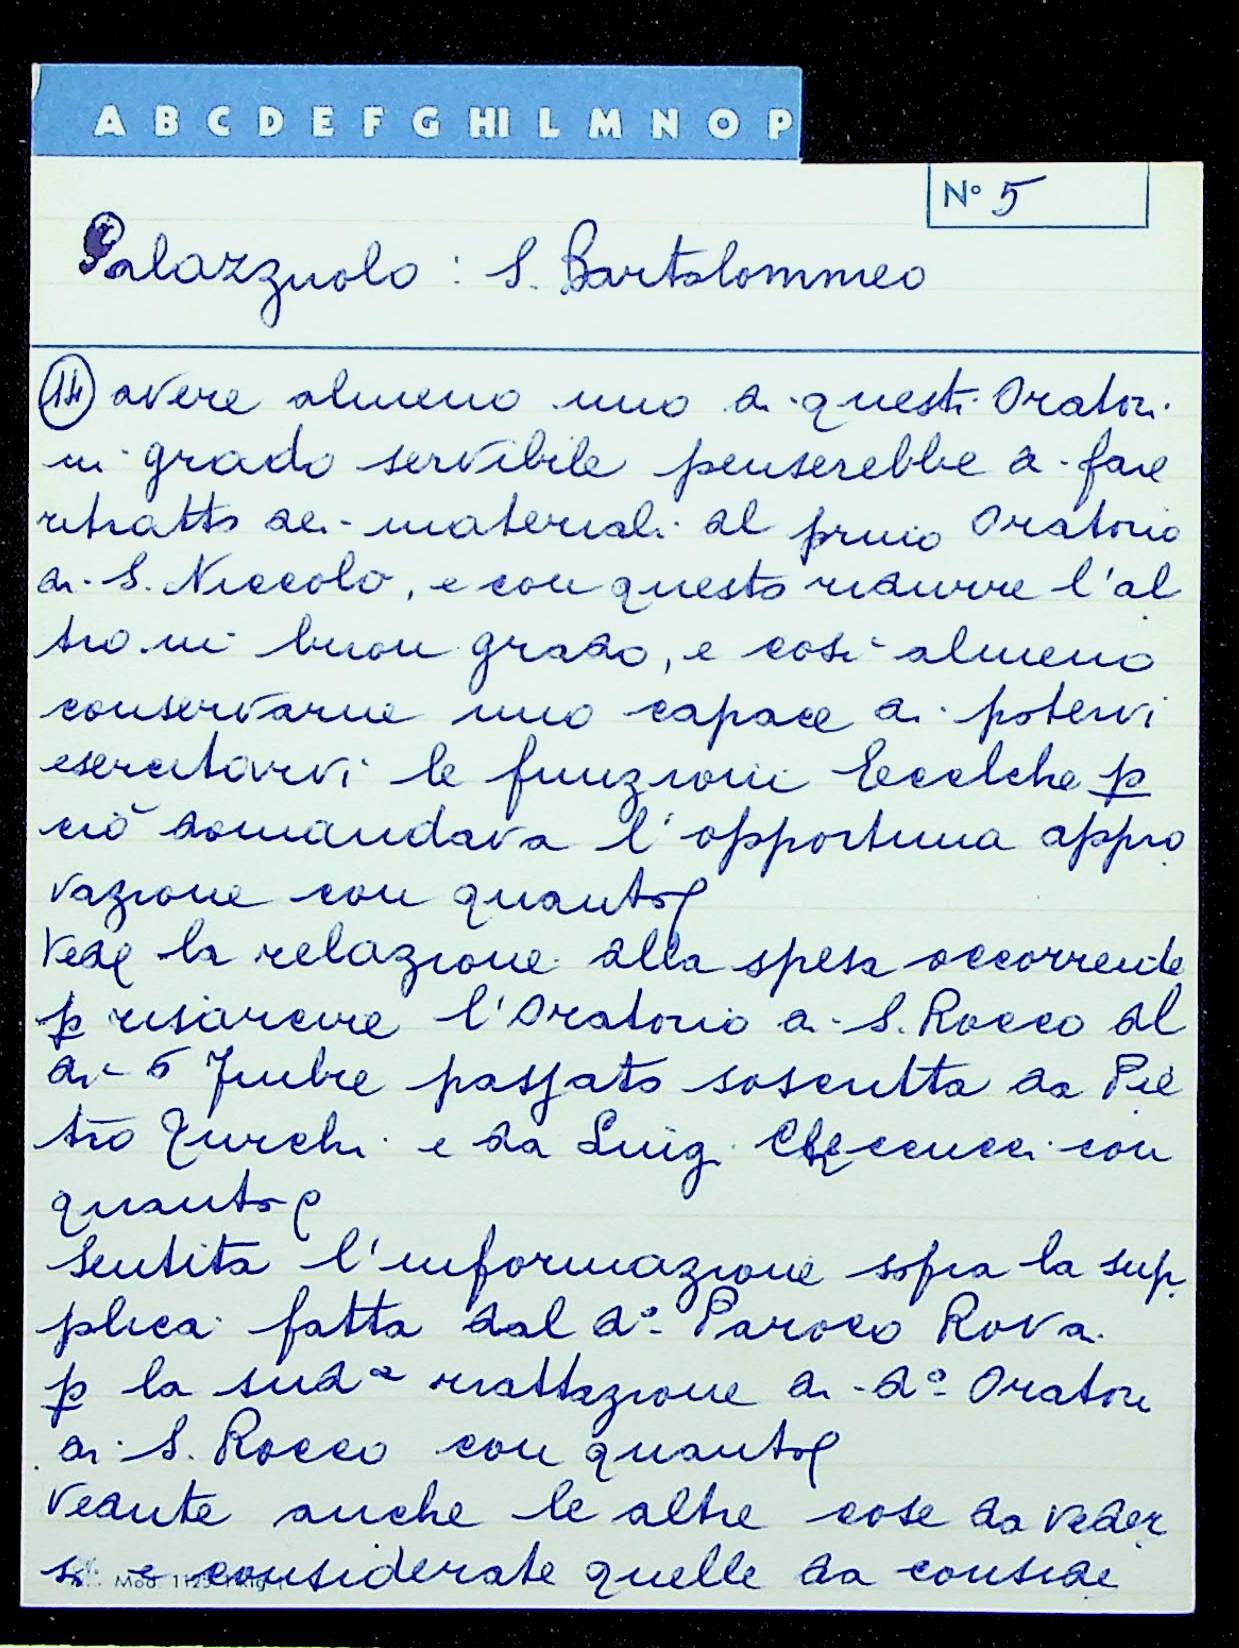 A B C D E F G HI L M N O P
N° 5
Palazzuolo : S. Bartolommeo
14 avere almeno uno di questi Oratori
in grado servibile penserebbe di fare
ritratto dei materiali del primo Oratorio
di S. Niccolò, e con questo ridurre l'al
tro in buon grado, e così almeno
conservarne uno capace di potervi
esercitarvi le funzioni Eccelche p
ciò domandava l'opportuna appro
vazione con quanto
la relazione della spesa occorrente
p risarcire l'Oratorio di S. Rocco del
dì 5 passato soscritta da Pie
tro Turchi e da Luigi con
quanto
Sentita l'informazione sopra la sup
plica fatta dal d° Paroco Rova
p la sud^a riattazione di d° Oratori
di S. Rocco con quanto
Vedute anche le altre cose da veder
si e considerate quelle da conside